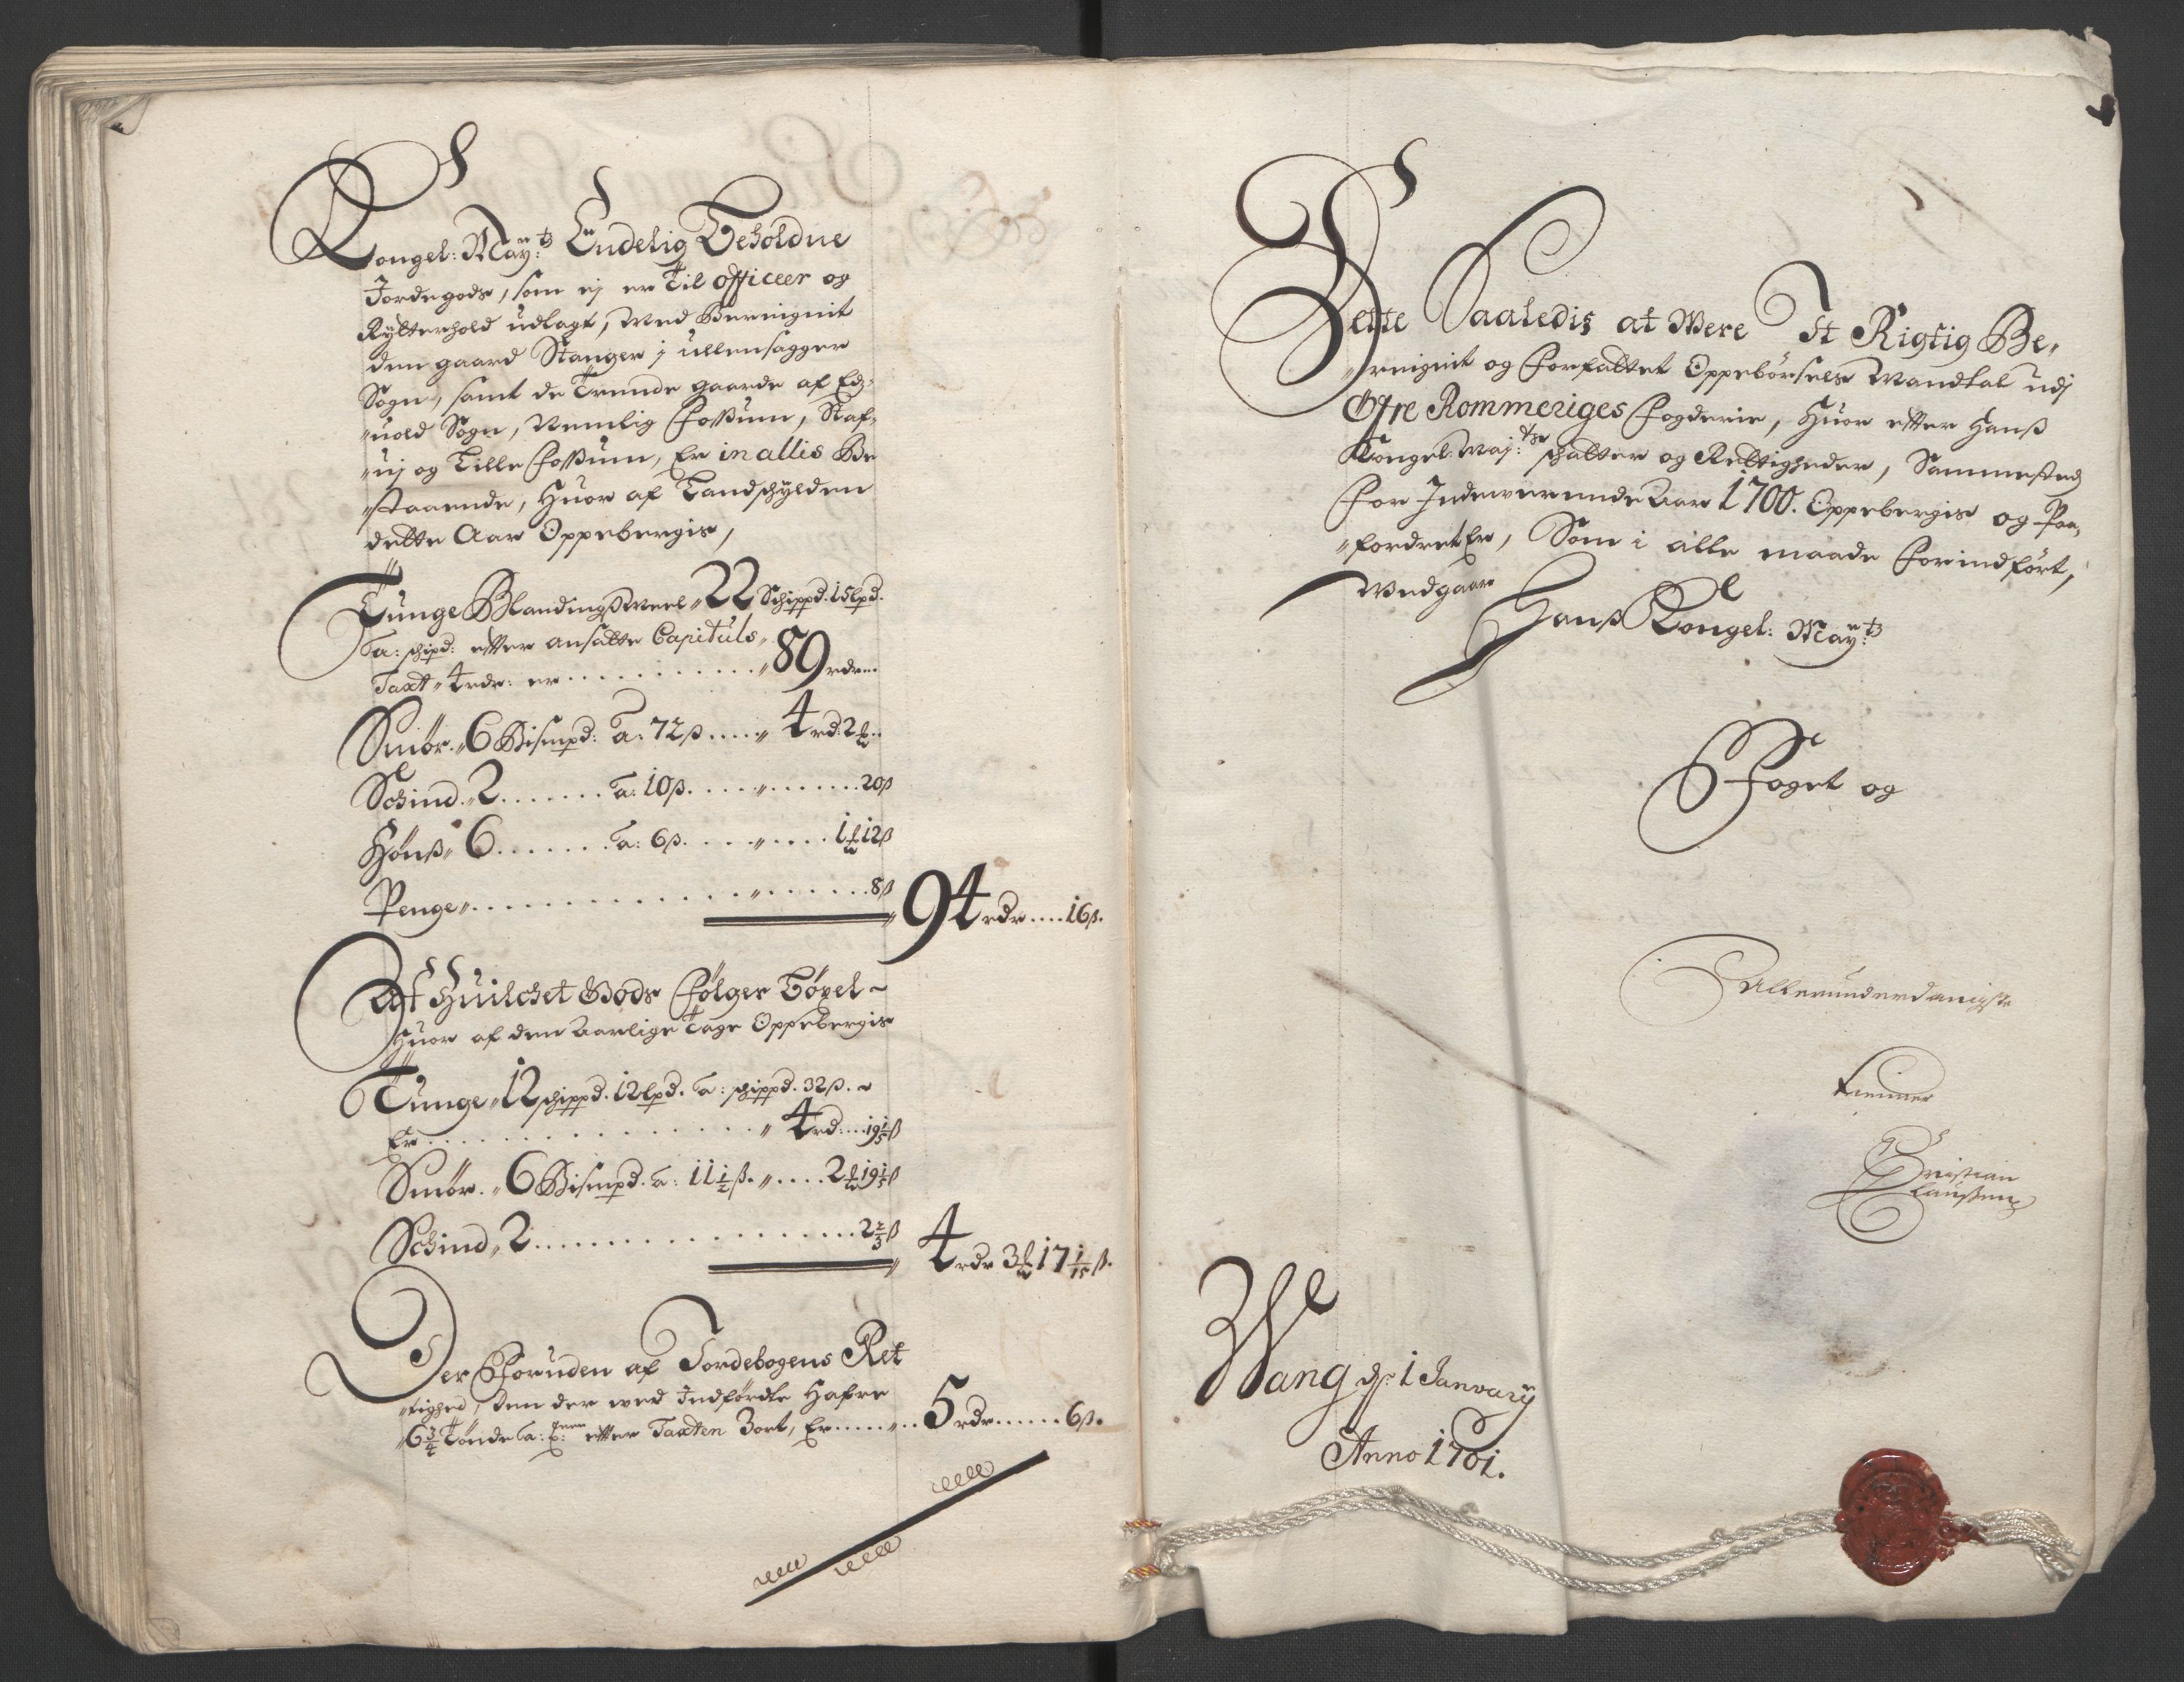 Kongel: May:ts Endelig Beholdne
Jordegods, som ej er Til officeer og
Rytterhold udlagt, Med Beregnit
den gaard Stanger j ullensagger
Sogn, samt de Trende gaarde af Edz„
„uold Sogn, Nemlig Fossum, Staf„
„uj og Lille Fossum, Er in allis Be
„staaende, Huor af Landschylden
dette Aar Oppebergis,
Tunge Blandingsmeel „22 Schippd. 15lpd.
a: schipd: efter ansatte Capituls„
Taxt „4 rdr: er ........... „89 rdr...
Smör. „6 Bismpd: a: 72ß..... „4 rd: 2 ..
Schind. „2 ....... a: 10ß. .... „ ....... 20ß
Hönß „6 ....... a: 6ß. .... „ .... 1 12ß
Penge „ ............ „ ...... 8ß
„94 rdr .... 16ß.
Aff Huilchet Gods Følger Böxel ~
Huor af den Aarlige Tage Oppebergis
Tunge „12 schippd. 12lpd. a: schippd. 32ß. ~
Er .............. „4 rd: ... 19 1/5 ß
Smör. „6 Bismpd. a: 11 1/2 ß. „ .... 2 19 1/5 ß
Schind „2 ................ 2 2/3 ß
„4 rdr 3 17 1/15 ß.
Der Foruden af Jordebogens Ret
„tighed, den der wed Indførdte Hafre
„6 3/4 Tønde a: efter Taxten Bort, Er .... „ .. 5 rdr ...... 6ß.
Dette Saaledis at Were It Rigtig Be„
„regnit og Forfattet Oppebörsels Mandtal udj
Øfre Rommeriges Fogderie, Huor efter Hans
Kongel: Maj:ts schatter og Rettigheder, Sammested
For Indeverende Aar 1700. Oppebergis og Paa„
„fordret Er, Som i alle maade Forindført,
Wedgaar
Hanß Kongel: May:ts
Foget og
Allerunderdanigste
tienner
Christian
Claußen
Wang d: 1 Janvary
Anno 1701.